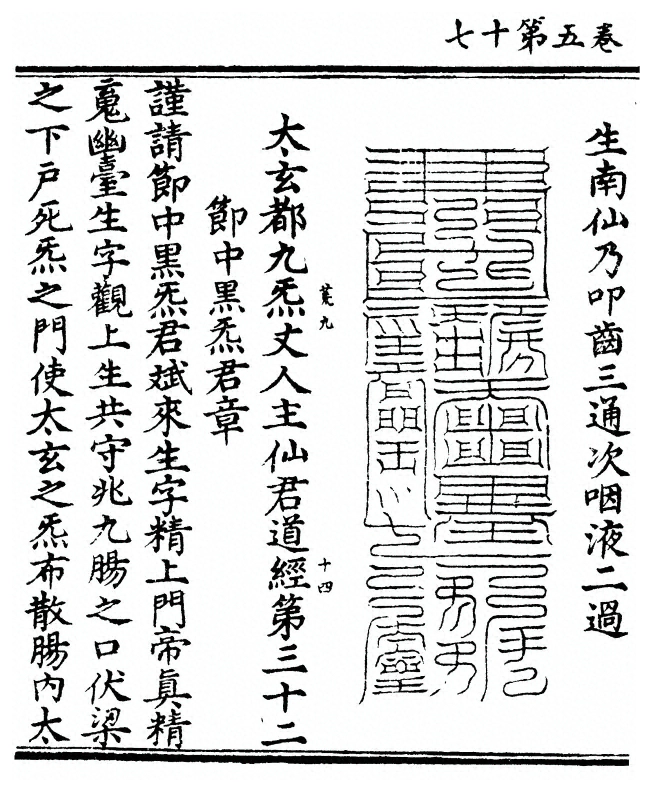 七十第五卷
生南仙乃叩齒三通次咽液二過
太玄都九炁丈人主仙君道經第三十二
九
十四
節中黑炁君章
謹請節中黑炁君斌來生字精上門帝真精
䰟幽臺生字觀上生共守兆九腸之口伏梁
之下戶死炁之門使太玄之炁布散腸內太